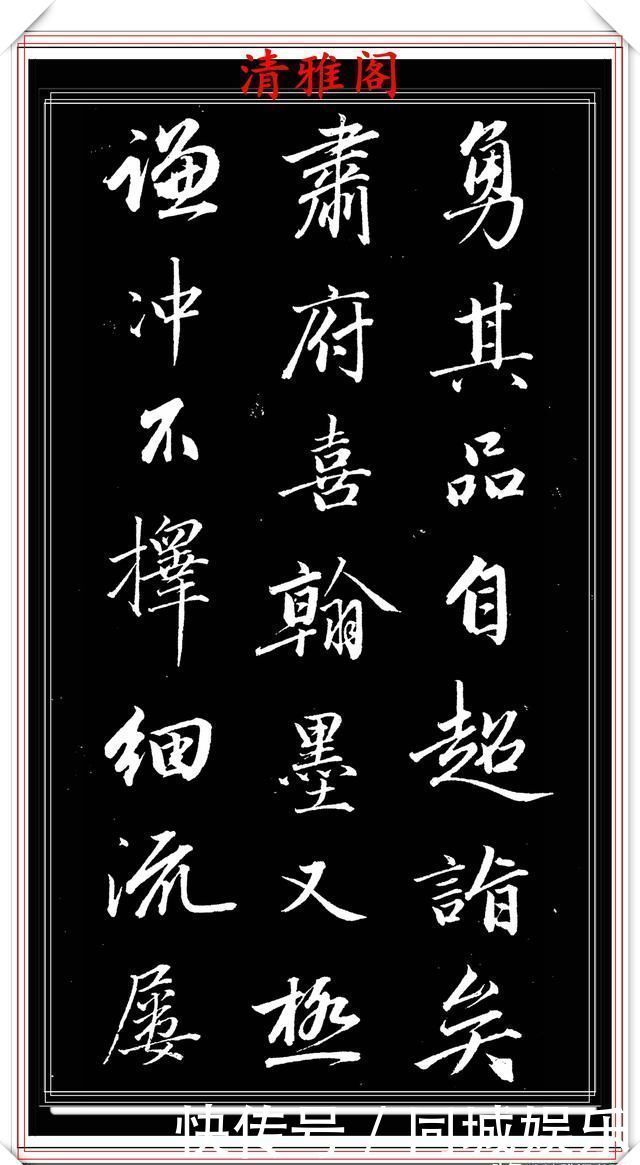 清雅阁
勇其品自超詣矣
肅府喜翰墨又極
谦冲不擇细流屢
快传号/同城娱乐